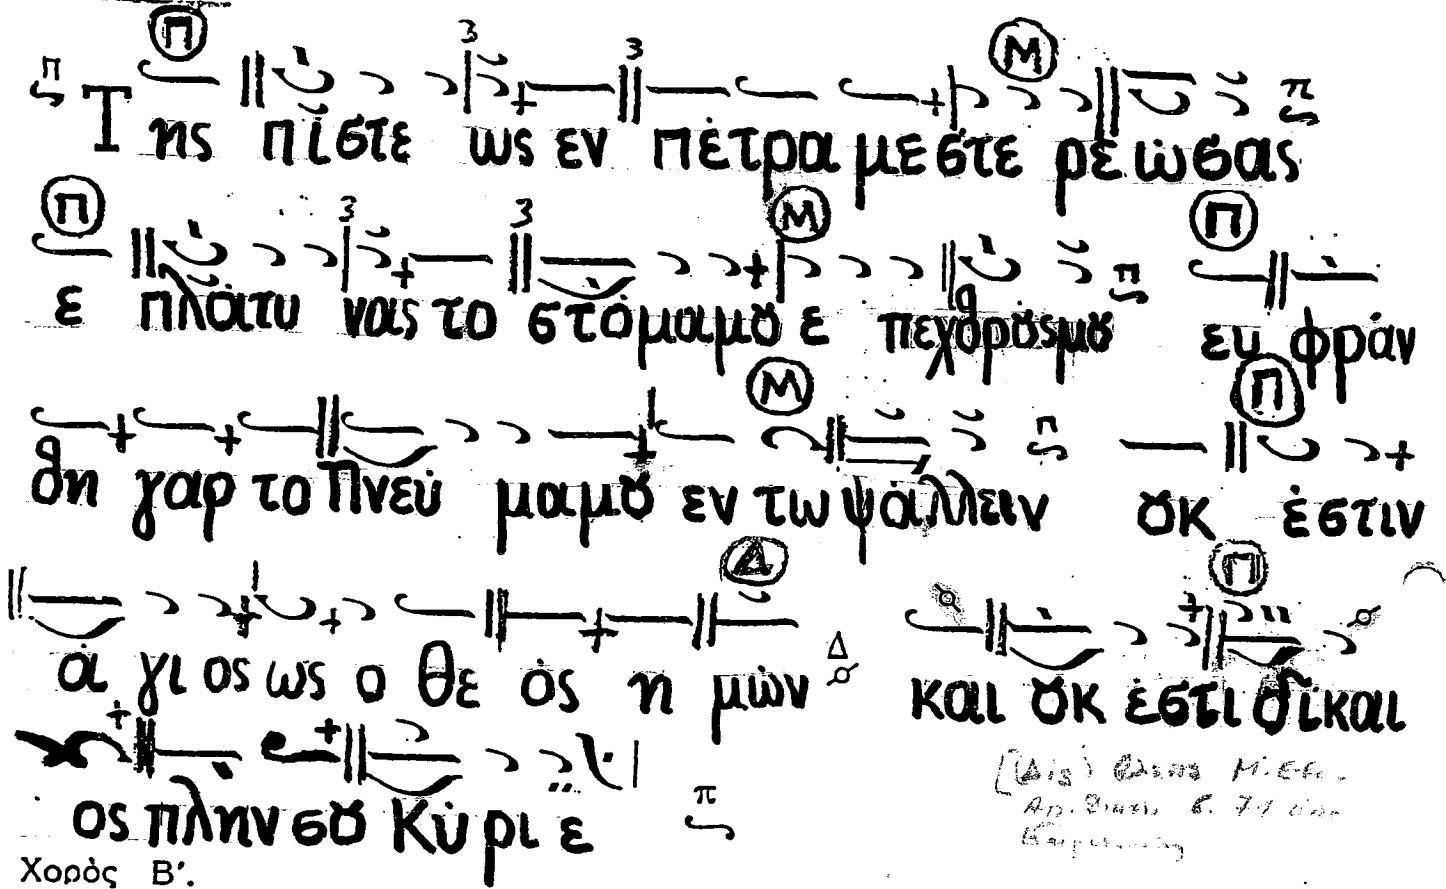 Της πίστε ως εν πέτρα με στε ρεώσας
ε πλάτυ νας το στόμα μου ε πεχθρούς μου ευ φράν
θη γαρ το Πνεύ μα μου εν τω ψάλλειν ουκ έστιν
ά γι ος ως ο Θε ός η μών και ουκ έστι δίκαι
ος πλην σου Κύ ρι ε
Χορὸς Β'.